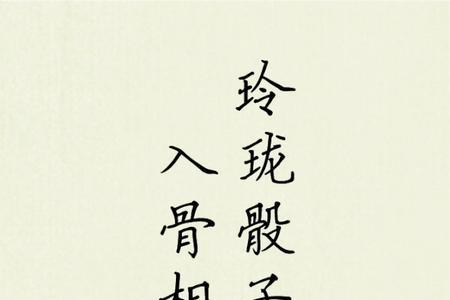 玲珑骰子
入骨相